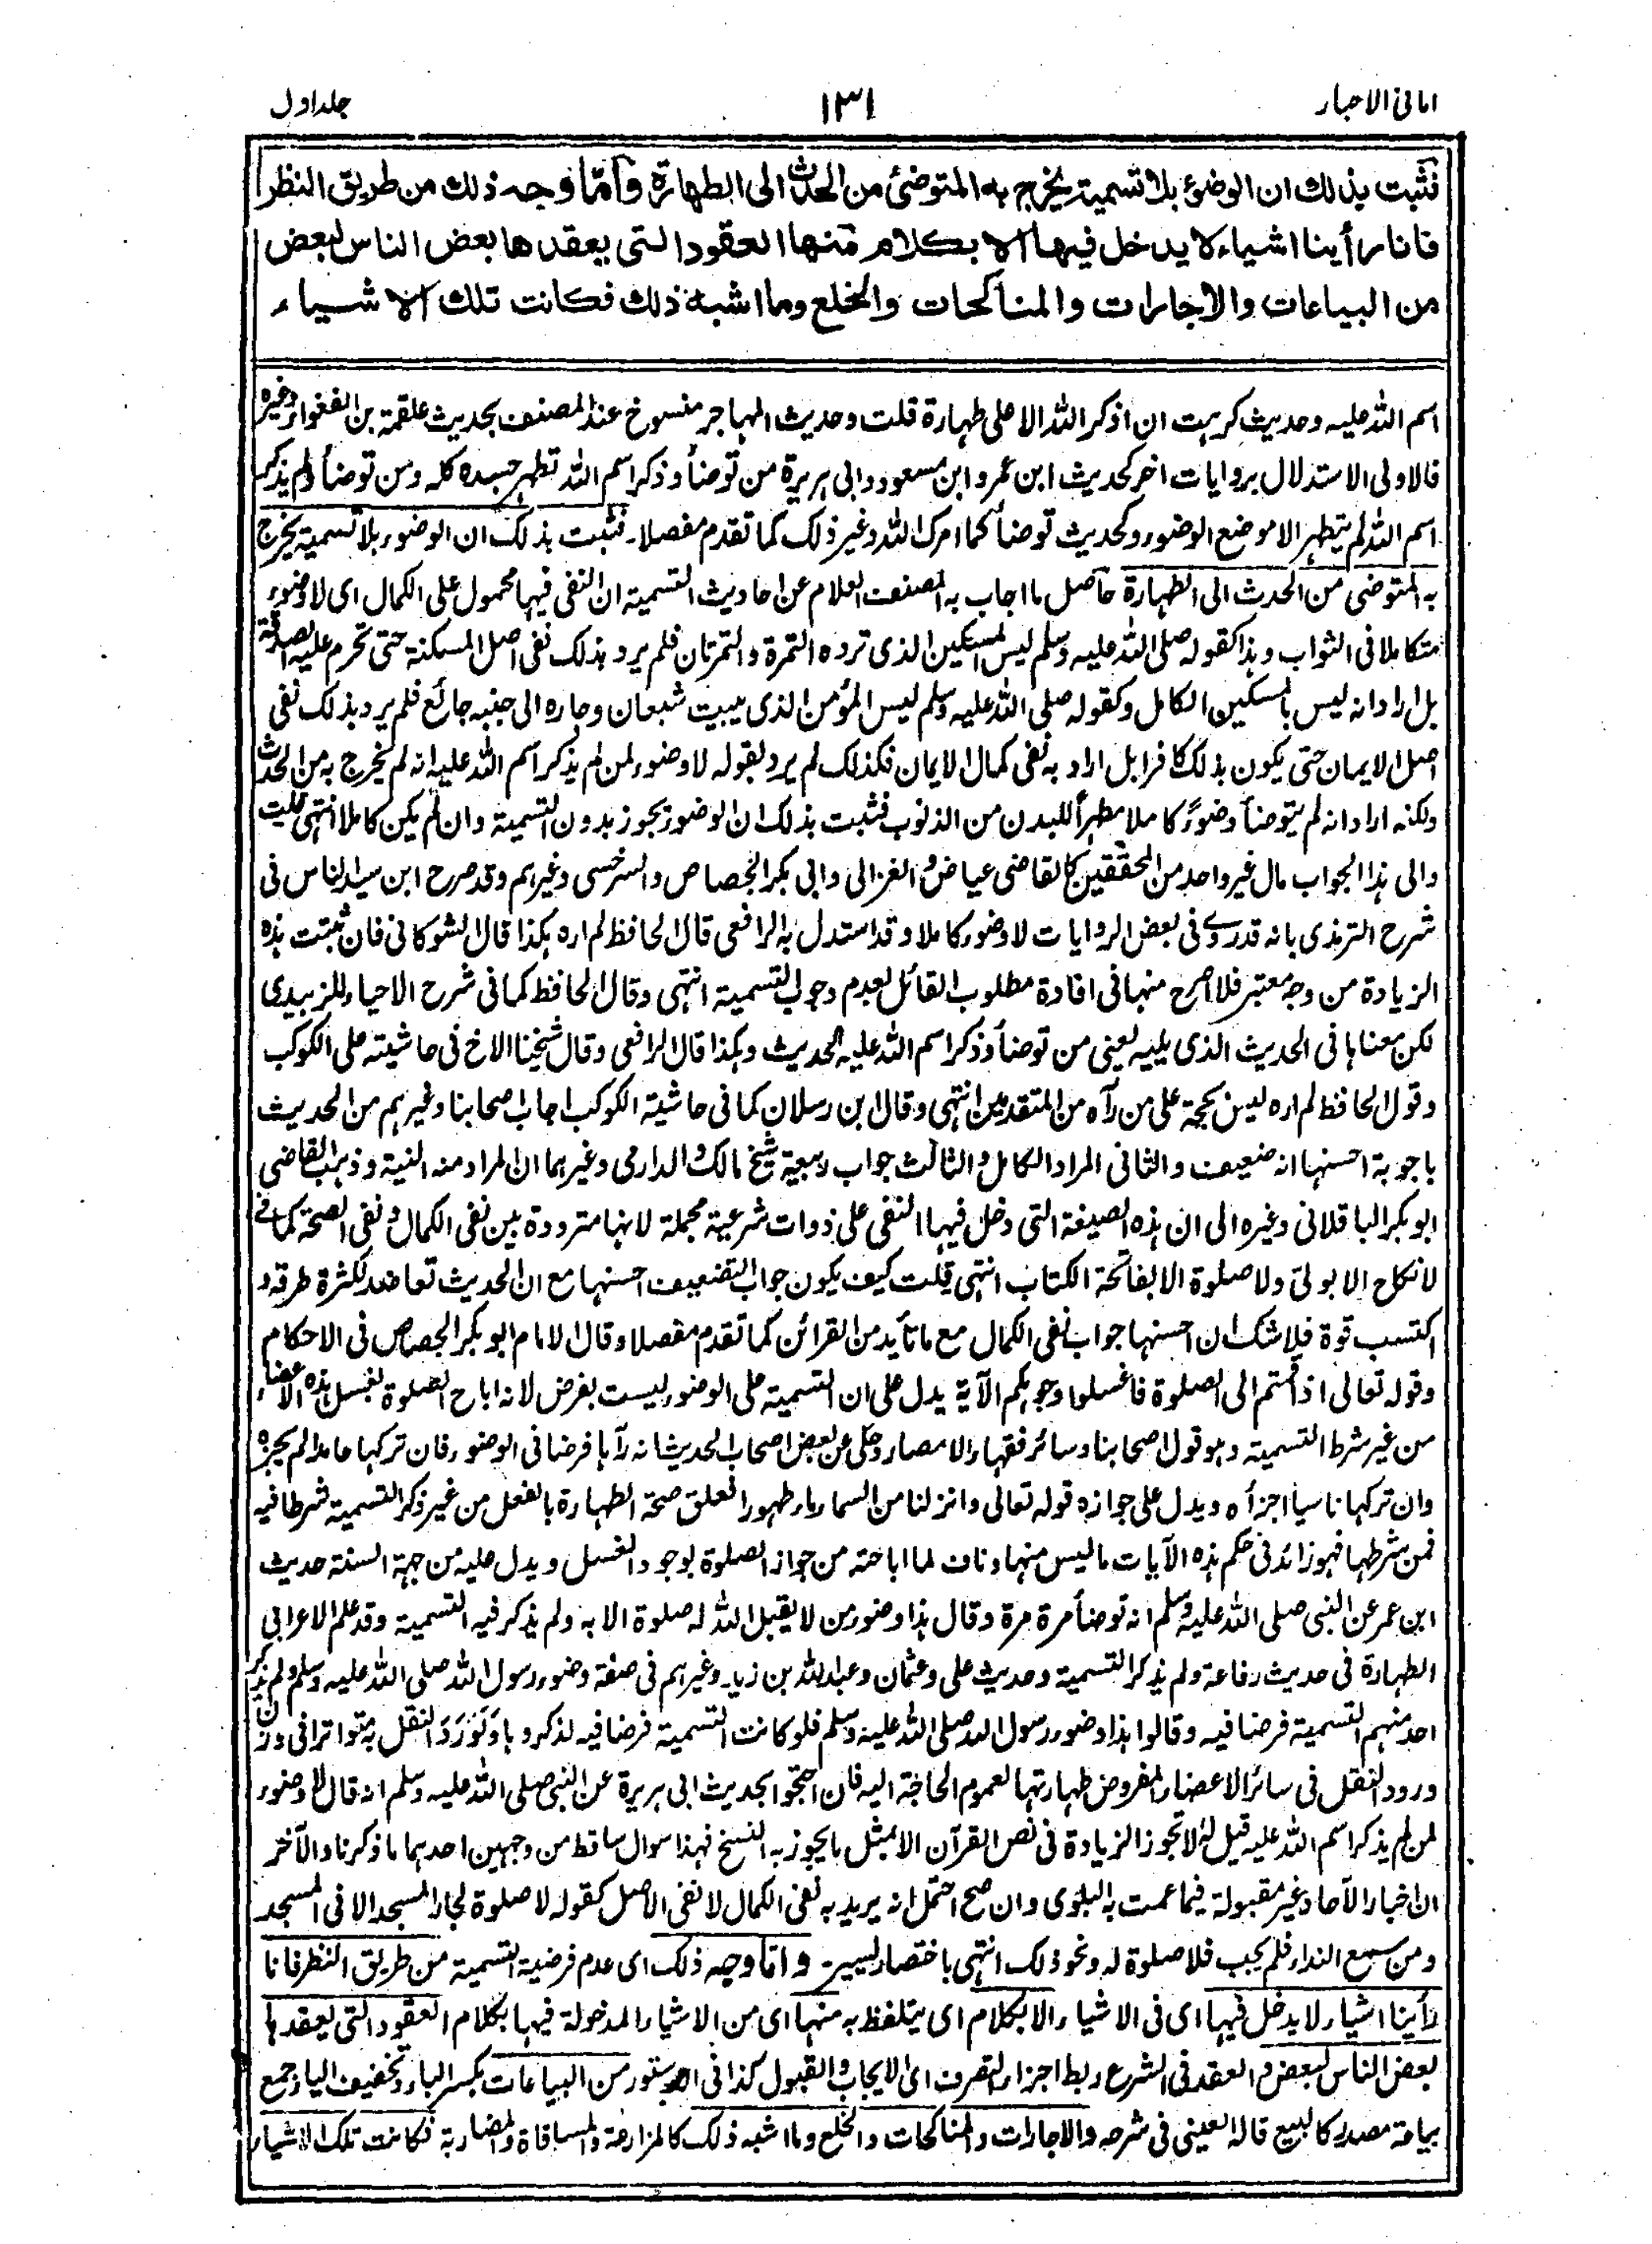 امانی الاحبار ۱۳۱ جلد اول
فثبت بذلك ان الوضوء بلا تسمية يخرج به المتوضئ من الحدث الى الطهارة وأما وجه ذلك من طريق النظر
فانا رأينا اشياء لا يدخل فيها الا بكلام منها العقود التى يعقدها بعض الناس لبعض
من البياعات والاجارات والمناكحات والخلع وما اشبه ذلك فكانت تلك الاشياء
اسم الله عليه وحديث كرهت ان اذكر الله الا على طهارة قلت وحديث المهاجر منسوخ عند المصنف بحديث علقمة بن الفغواء وغيره
فالاولى الاستدلال بروايات اخر كحديث ابن عمر وابن مسعود وابى هريرة من توضأ وذكر اسم الله تطهر جسده كله ومن توضأ ولم يذكر
اسم الله لم يتطهر الا موضع الوضوء وكحديث توضأ كما امرك الله وغير ذلك كما تقدم مفصلا۔ فثبت بذلك ان الوضوء بلا تسمية يخرج
به المتوضى من الحدث الى الطهارة حاصل ما اجاب به المصنف العلام عن احاديث التسمية ان النفى فيها محمول على الكمال اى لا وضوء
متكاملا فى الثواب وهذا كقوله صلى الله عليه وسلم ليس المسكين الذى ترده التمرة والتمرتان فلم يرد بذلك نفى اصل المسكنة حتى تحرم عليه الصدقة
بل اراد انه ليس بالمسكين الكامل وكقوله صلى الله عليه وسلم ليس المؤمن الذى يبيت شبعان وجاره الى جنبه جائع فلم يرد بذلك نفى
اصل الايمان حتى يكون بذلك كافرا بل اراد به نفى كمال الايمان فكذلك لم يرد بقوله لا وضوء لمن لم يذكر اسم الله عليه انه لم يخرج به من الحدث
ولكنه اراد انه لم يتوضأ وضوءً كاملا مطهراً للبدن من الذنوب فثبت بذلك ان الوضوء يجوز بدون التسمية وان لم يكن كاملا انتهى قلت
والى هذا الجواب مال غير واحد من المحققين كالقاضى عياض والغزالى وابى بكر الجصاص والسرخسى وغيرهم وقد صرح ابن سيد الناس فى
شرح الترمذى بانه قد روى فى بعض الروايات لا وضوء كاملا وقد استدل به الرافعى قال الحافظ لم اره هكذا قال الشوكانى فان ثبتت هذه
الزيادة من وجه معتبر فلا اصرح منها فى افادة مطلوب القائل بعدم وجوب التسمية انتهى وقال الحافظ كما فى شرح الاحياء للزبيدى
لكن معناها فى الحديث الذى يليه يعنى من توضأ وذكر اسم الله عليه الحديث وهكذا قال الرافعى وقال شيخنا الاخ فى حاشيته على الكوكب
وقول الحافظ لم اره ليس بحجة على من رآه من المتقدمين انتهى وقال ابن رسلان كما فى حاشية الكوكب اجاب اصحابنا وغيرهم من الحديث
باجوبة احسنها انه ضعيف والثانى المراد الكامل والثالث جواب ربيعة شيخ مالك والدارمى وغيرهما ان المراد منه النية وذهب القاضى
ابو بكر الباقلانى وغيره الى ان هذه الصيغة التى دخل فيها النفى على ذوات شرعية مجملة لانها مترددة بين نفى الكمال ونفى الصحة كما فى
لا نكاح الا بولى ولا صلوة الا بفاتحة الكتاب انتهى قلت كيف يكون جواب التضعيف احسنها مع ان الحديث تعاضد لكثرة طرقه و
اكتسب قوة فلا شك ان احسنها جواب نفى الكمال مع ما تأيد من القرائن كما تقدم مفصلا وقال الامام ابو بكر الجصاص فى الاحكام
وقوله تعالى اذا قمتم الى الصلوة فاغسلوا وجوهكم الآية يدل على ان التسمية على الوضوء ليست بفرض لانه اباح الصلوة بغسل هذه الاعضاء
من غير شرط التسمية وهو قول اصحابنا وسائر فقهاء الامصار وحكى عن بعض اصحاب الحديث انه رآها فرضا فى الوضوء فان تركها عامدا لم يجزه
وان تركها ناسيا اجزأه ويدل على جوازه قوله تعالى وانزلنا من السماء ماء طهورا فعلق صحة الطهارة بالفعل من غير ذكر التسمية شرطا فيه
فمن شرطها فهو زائد فى حكم هذه الآيات ما ليس منها وناف لما اباحته من جواز الصلوة بوجود الغسل ويدل عليه من جهة السنة حديث
ابن عمر عن النبى صلى الله عليه وسلم انه توضأ مرة مرة وقال هذا وضوء من لا يقبل الله له صلوة الا به ولم يذكر فيه التسمية وقد علم الاعرابى
الطهارة فى حديث رفاعة ولم يذكر التسمية وحديث على وعثمان وعبد الله بن زيد وغيرهم فى صفة وضوء رسول الله صلى الله عليه وسلم ولم يذكر
احد منهم التسمية فرضا فيه وقالوا هذا وضوء رسول الله صلى الله عليه وسلم فلو كانت التسمية فرضا فيه لذكروها ولَوَرَدَ النقل به متواترا فى وزن
ورود النقل فى سائر الاعضاء المفروض طهارتها لعموم الحاجة اليه فان احتجوا بحديث ابى هريرة عن النبى صلى الله عليه وسلم انه قال لا وضوء
لمن لم يذكر اسم الله عليه قيل له لا تجوز الزيادة فى نص القرآن الا بمثل ما يجوز به النسخ فهذا سوال ساقط من وجهين احدهما ما ذكرنا والآخر
ان اخبار الآحاد غير مقبولة فيما عمت به البلوى وان صح احتمل انه يريد به نفى الكمال لا نفى الاصل كقوله لا صلوة لجار المسجد الا فى المسجد
ومن سمع النداء فلم يجب فلا صلوة له ونحو ذلك انتهى باختصار يسير۔ واما وجه ذلك اى عدم فرضية التسمية من طريق النظر فانا
رأينا اشياء لا يدخل فيها اى فى الاشياء الا بكلام اى يتلفظ به منها اى من الاشياء المدخولة فيها بكلام العقود التى يعقدها
بعض الناس لبعض والعقد فى الشرع ربط اجزاء التصرف اى الايجاب والقبول كذا فى الدستور من البياعات بكسر الباء وتخفيف الياء جمع
بياعة مصدر كالبيع قاله العينى فى شرحه والاجارات والمناكحات والخلع وما اشبه ذلك كالمزارعة والمساقاة والمضاربة فكانت تلك الاشياء